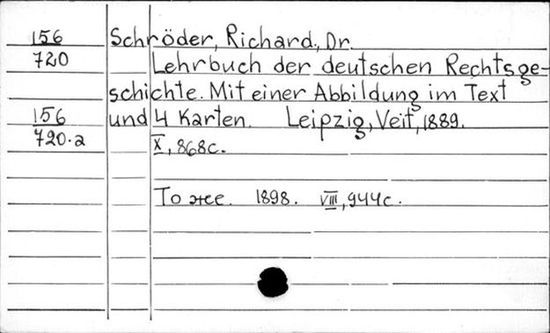 156 Schröder, Richard, Dr.
720 Lehrbuch der deutschen Rechtsge-
schichte. Mit einer Abbildung im Text
156 und 4 Karten. Leipzig, Veit, 1889.
720.a X, 868c.
То же. 1898. VIII, 944c.